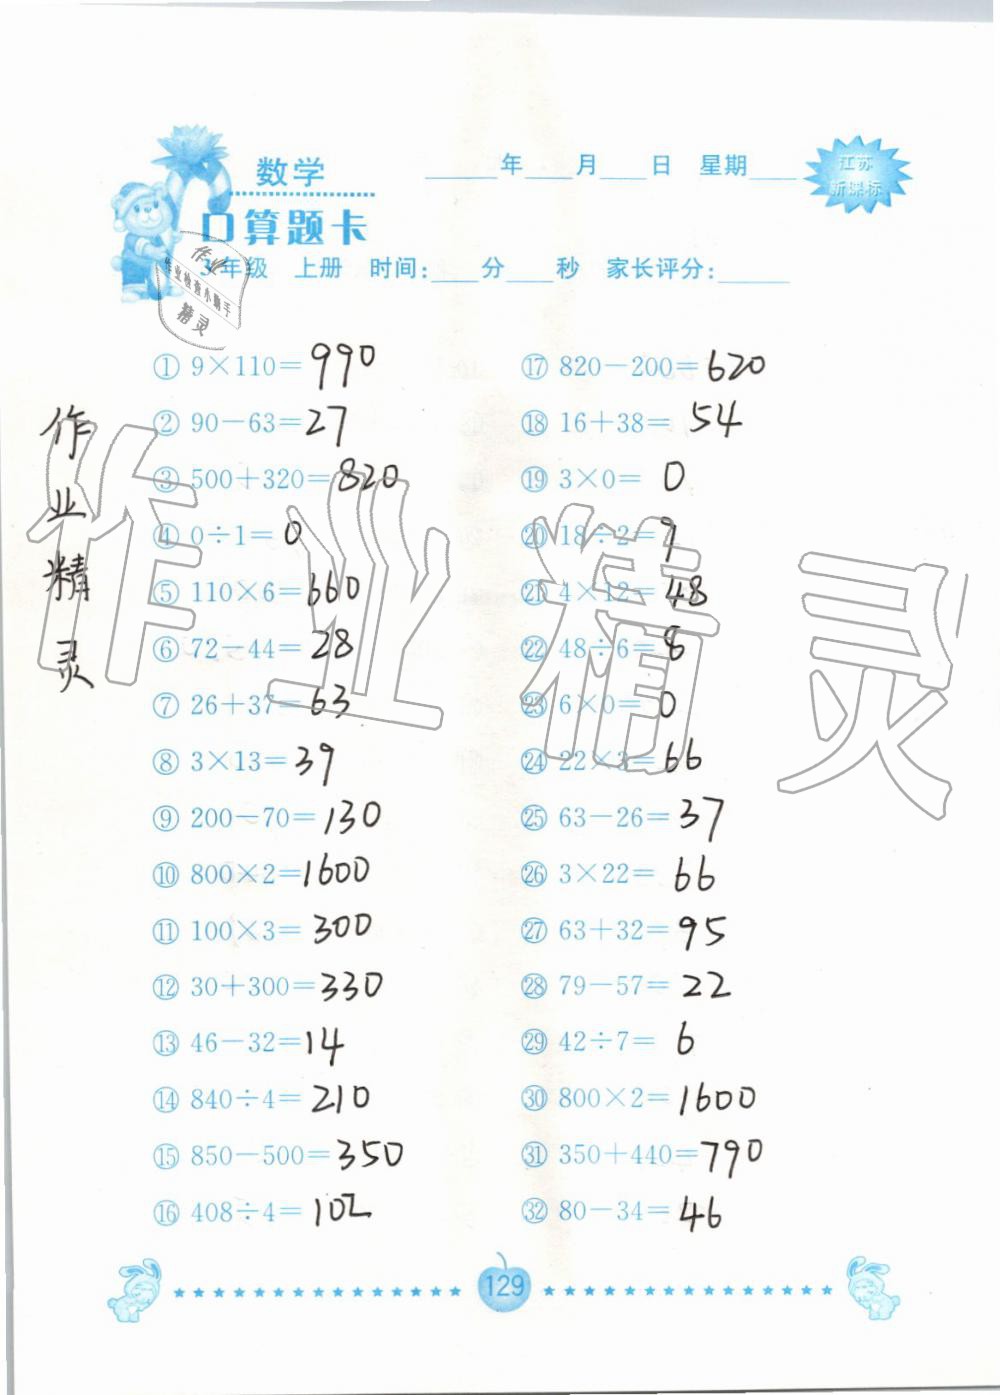 数学
____年____月____日 星期____
江苏
新课标
口算题卡
3年级 上册 时间:____分____秒 家长评分:______
作业
作业检查小助手
精灵
① 9×110=990
② 90-63=27
③ 500+320=820
④ 0÷1=0
⑤ 110×6=660
⑥ 72-44=28
⑦ 26+37=63
⑧ 3×13=39
⑨ 200-70=130
⑩ 800×2=1600
⑪ 100×3=300
⑫ 30+300=330
⑬ 46-32=14
⑭ 840÷4=210
⑮ 850-500=350
⑯ 408÷4=102
⑰ 820-200=620
⑱ 16+38=54
⑲ 3×0=0
⑳ 18÷2=9
㉑ 4×12=48
㉒ 48÷6=8
㉓ 6×0=0
㉔ 22×3=66
㉕ 63-26=37
㉖ 3×22=66
㉗ 63+32=95
㉘ 79-57=22
㉙ 42÷7=6
㉚ 800×2=1600
㉛ 350+440=790
㉜ 80-34=46
作业精灵
作业精灵
129